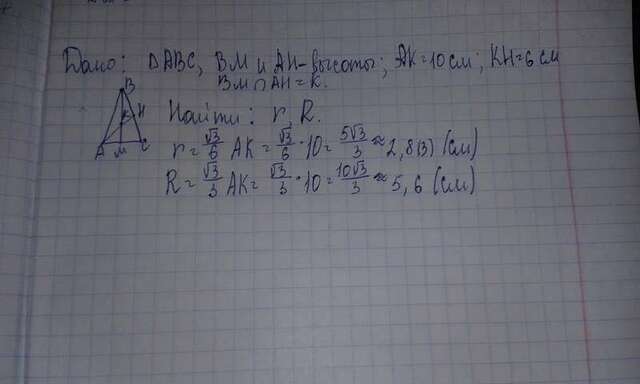 Дано: ΔABC, BM и AH-высоты; AK=10 см; KH=6 см
BM ∩ AH = K.
Найти: r, R.
r = √3/6 AK = √3/6 · 10 = 5√3/3 ≈ 2,8(3) (см)
R = √3/3 AK = √3/3 · 10 = 10√3/3 ≈ 5,6 (см)
B
K H
A M C